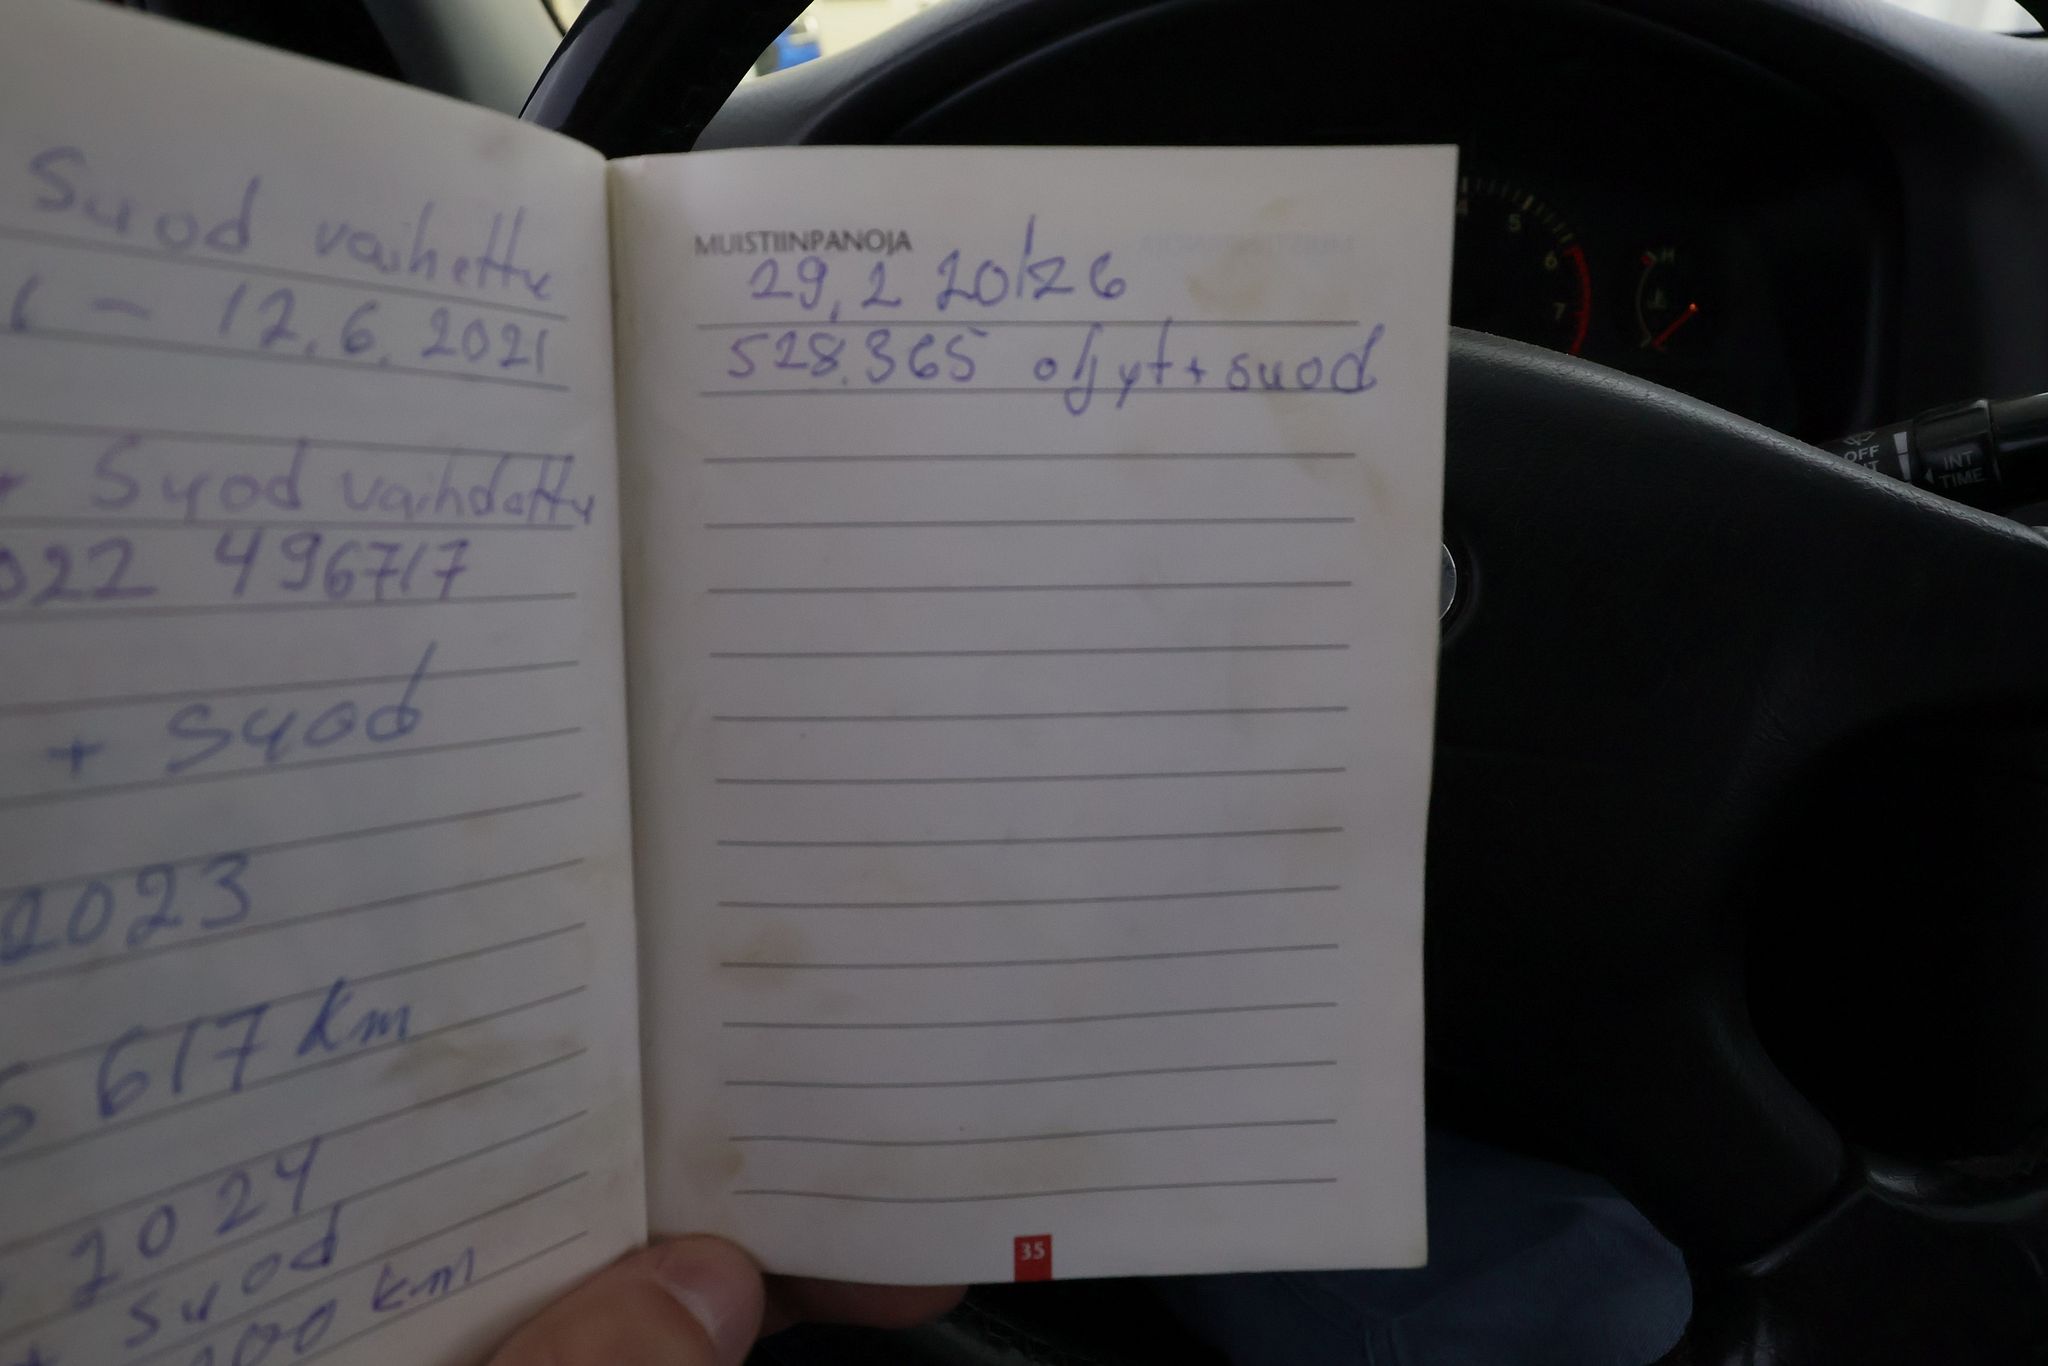 Suod vaihettu
- 12.6.2021
+ Suod vaihdettu
022 496717
+ Suod
2023
6 617 km
2024
+ suod
200 km
MUISTIINPANOJA
29.2 20/26
528.365 öljyt + suod
35
4
5
6
7
H
OFF
INT
INT
TIME